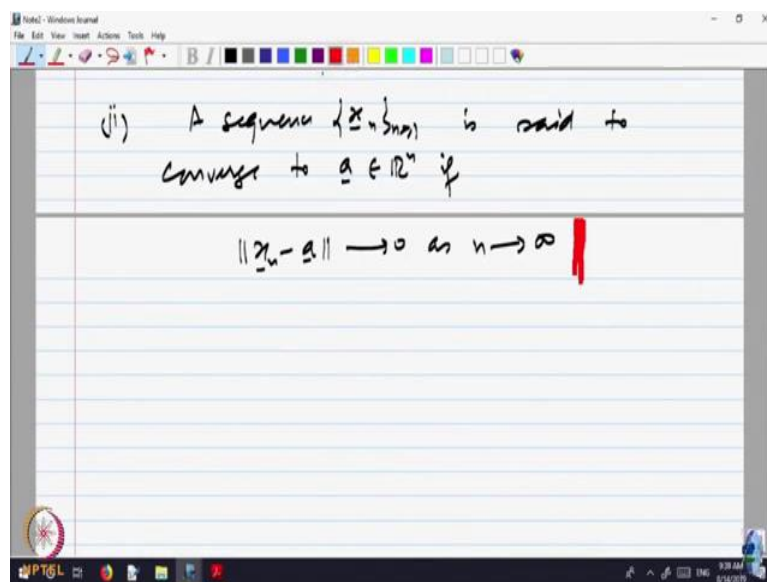 Note2 - Windows Journal
File Edit View Insert Actions Tools Help
B I
(ii) A sequence {x̲ₙ}ₙ≥₁ is said to
converge to a̲ ∈ ℝⁿ if
||x̲ₙ - a̲|| → 0 as n → ∞
NPTEL
ENG
9:39 AM
8/14/2019